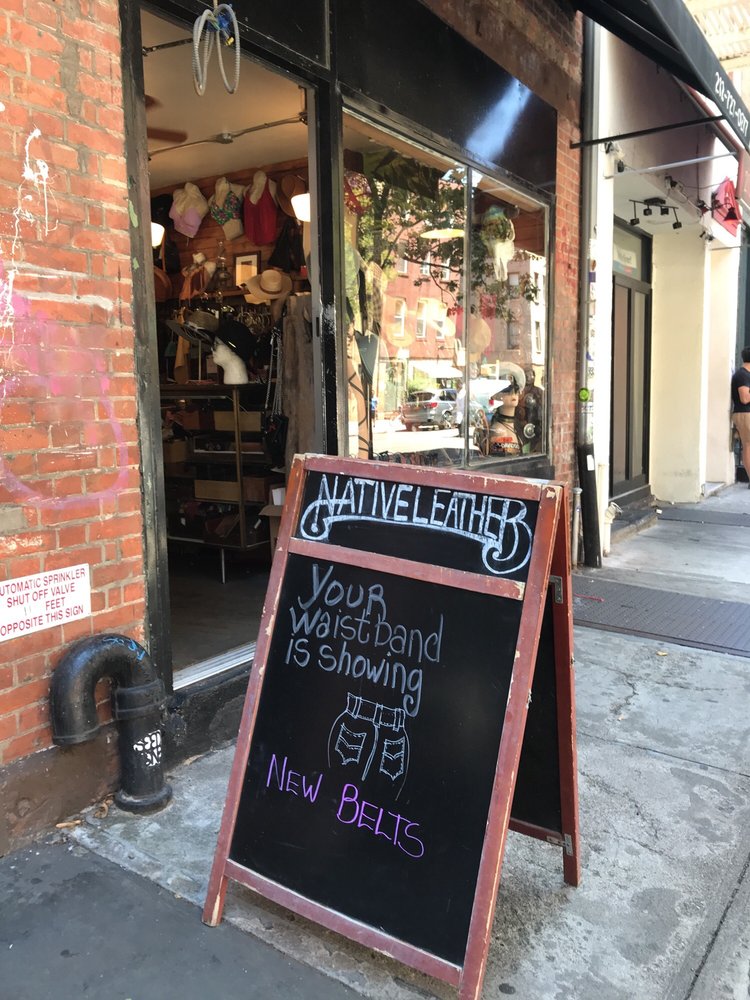 NATIVE LEATHER
Your
waistband
is showing
NEW BELTS
AUTOMATIC SPRINKLER
SHUT OFF VALVE
FEET
OPPOSITE THIS SIGN